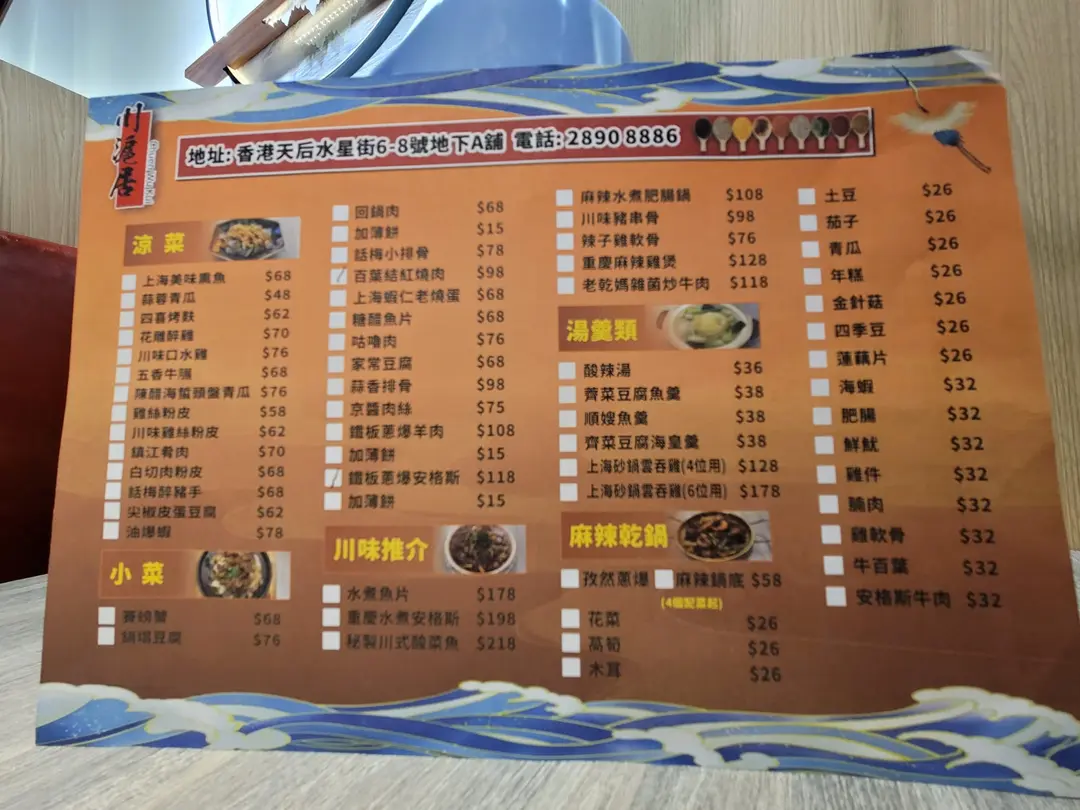 川滬居
地址: 香港天后水星街6-8號地下A舖 電話: 2890 8886
涼菜
上海美味熏魚 $68
蒜蓉青瓜 $48
四喜烤麩 $62
花雕醉雞 $70
川味口水雞 $76
五香牛腸 $68
陳醋海蜇頭盤青瓜 $76
雞絲粉皮 $58
川味雞絲粉皮 $62
鎮江肴肉 $70
白切肉粉皮 $68
話梅醉豬手 $68
尖椒皮蛋豆腐 $62
油爆蝦 $78
小菜
賽螃蟹 $68
鍋塌豆腐 $76
回鍋肉 $68
加薄餅 $15
話梅小排骨 $78
百葉結紅燒肉 $98
上海蝦仁老燒蛋 $68
糖醋魚片 $68
咕嚕肉 $76
家常豆腐 $68
蒜香排骨 $98
京醬肉絲 $75
鐵板蔥爆羊肉 $108
加薄餅 $15
鐵板蔥爆安格斯 $118
加薄餅 $15
川味推介
水煮魚片 $178
重慶水煮安格斯 $198
秘製川式酸菜魚 $218
麻辣水煮肥腸鍋 $108
川味豬串骨 $98
辣子雞軟骨 $76
重慶麻辣雞煲 $128
老乾媽雜菌炒牛肉 $118
湯羹類
酸辣湯 $36
薺菜豆腐魚羹 $38
順嫂魚羹 $38
齊菜豆腐海皇羹 $38
上海砂鍋雲吞雞(4位用) $128
上海砂鍋雲吞雞(6位用) $178
麻辣乾鍋
孜然蔥爆 麻辣鍋底 $58
(4個配菜起)
花菜 $26
萵筍 $26
木耳 $26
土豆 $26
茄子 $26
青瓜 $26
年糕 $26
金針菇 $26
四季豆 $26
蓮藕片 $26
海蝦 $32
肥腸 $32
鮮魷 $32
雞件 $32
腩肉 $32
雞軟骨 $32
牛百葉 $32
安格斯牛肉 $32